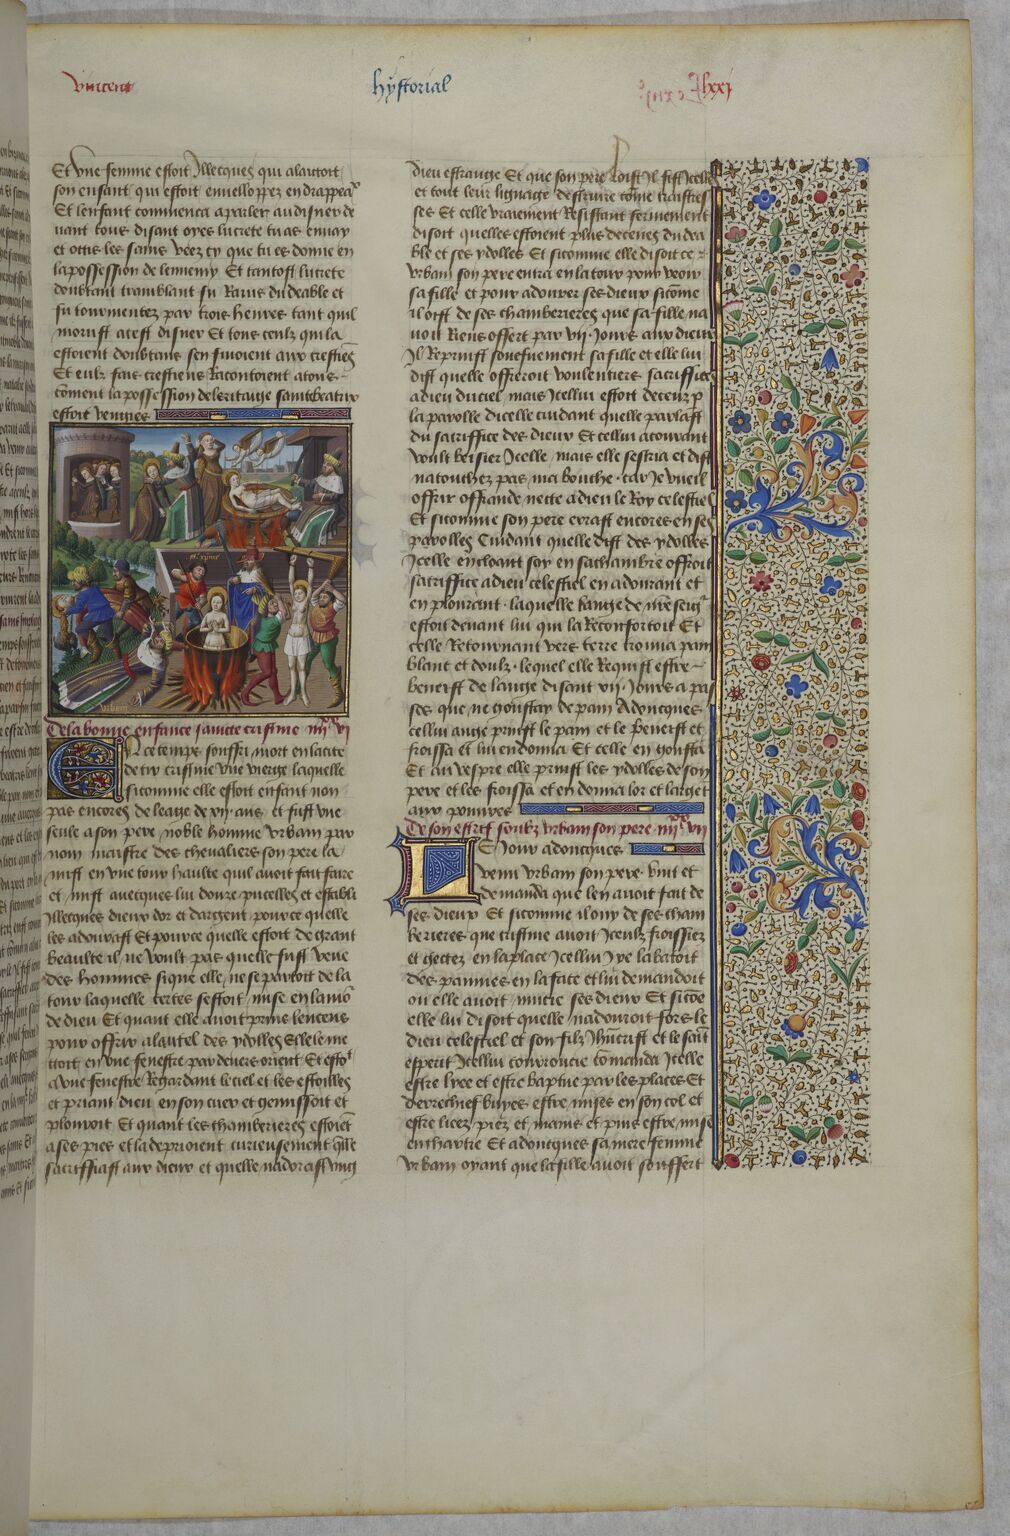 vincent
hystorial
lxxi
Et vne femme estoit Illecques qui alaictoit
son enfant qui estoit enueloppez en drappeaux
Et lenfant commenca a parler au disner de
uant tous disant oyes lucrete tu as enuay
et occis les sains veez cy que tu es donne en
la possession de lennemy Et tantost lucrete
doubtant tramblant fu Rauis du deable et
fu tourmentez par trois heures tant quil
morust a cest disner Et tous ceulz qui la
estoient doubtans sen fuioient aux crestiens
Et eulz fais crestiens Racontoient a tous
coment la possession de leritaige saincte beatrix
estoit vengiee
De la bonne enfance saincte cristine iiijxx vj
En ce temps souffri mort en la cite
de tir cristine vne vierge laquelle
sicomme elle estoit enfant non
pas encores de leage de vij ans et fust vne
seule a son pere noble homme vrbain par
nom maistre des cheualiers son pere la
mist en vne tour haulte quil auoit fait faire
et mist auecques lui douze pucelles et establi
Illecques dieux dor et dargent pource quelle
les adourast Et pource quelle estoit de grant
beaulte il ne voult pas quelle fust veue
des hommes si que elle ne se partoit de la
tour laquelle certes sestoit mise en lamor
de dieu Et quant elle auoit prins lencens
pour offrir a lautel des ydolles elle le me
ttoit en vne fenestre par deuers orient Et estoit
a vne fenestre Regardant le ciel et les estoilles
et priant dieu en son cuer et gemissoit et
plouroit Et quant les chamberieres estoient
a ses pies et la deprioient curieusement quelle
sacrifiast aux dieux et quelle nadorast mie
dieu estrange Et que son pere loist Il fist Icelle
et tout leur lignage destruire come traistres
ses Et celle vraiement Resistant fermement
disoit quelles estoient plus deceues du dea
ble et ses ydolles Et sicomme elle disoit ce
vrbain son pere entra en la tour pour veoir
sa fille et pour adourer ses dieux sicome
il oist de ses chamberieres que sa fille na
uoit Riens offert par vij Jours aux dieux
Il Reprinst souefuement sa fille et elle lui
dist quelle offreroit voulentiers sacriffice
a dieu du ciel mais Icellui estoit deceuz p
la parolle dicelle cuidant quelle parlast
du sacriffice des dieux Et cellui acourant
voult beisier Icelle mais elle sescria et dist
na touchez pas ma bouche car Je vueil
offrir offrande nette a dieu le Roy celestiel
Et sicomme son pere errast encores en ses
parolles Cuidant quelle dist des ydolles
Icelle encloant soy en sa chambre offroit
sacriffice a dieu celestiel en adourant et
en plourent laquelle lange de nre seigr
estoit deuant lui qui la Reconfortoit Et
celle Retournant vers terre trouua pain
blant et doulz lequel elle Requist estre
beneist de lange disant vij Jours a pas
ses que ne goustay de pain Adoncques
cellui ange prinst le pain et le beneist et
froissa et lui en donna Et celle en gousta
Et au vespre elle prinst les ydolles de son
pere et les froissa et en donna lor et largent
aux pouures
De son estrif soubz vrbain son pere iiijxx vij
Le Jour adoncques
veni vrbain son pere vint et
demanda que len auoit fait de
ses dieux Et sicomme il ony de ses cham
berieres que cristine auoit Iceulx froissiez
et gectez en la place Icellui yre la batoit
des paumes en la face et lui demandoit
ou elle auoit mucie ses dieux Et sicoe
elle lui disoit quelle nadouroit fors le
dieu celestiel et son filz Jhucrist et le saint
esperit Icellui courroucie comanda Icelle
estre lyee et estre batue par les places Et
derechief buyes estre mises en son col et
estre liez piez et mains et puis estre mise
en chartre Et adoncques sa mere femme
vrbain oyant que la fille auoit souffert